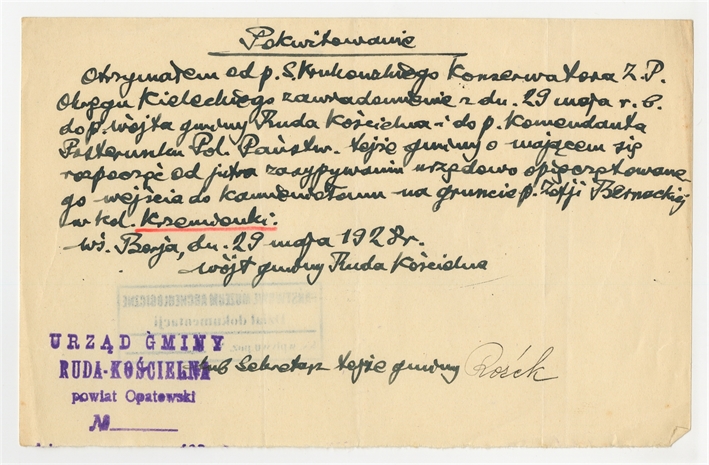 Pokwitowanie
Otrzymałem od p. S. Krukowskiego Konserwatora Z.P.
Okręgu Kieleckiego zawiadomienie z dn. 29 maja r. b.
do p. wójta gminy Ruda Kościelna i do p. Komendanta
Posterunku Pol. Państw. tejże gminy o mającem się
rozpocząć od jutra zasypywaniu urzędowo opieczętowane
go wejścia do kamieniołomu na gruncie p. Zofji Bernackiej
w kol. Krzemionki.
wś. Borja, dn. 29 maja 1928 r.
wójt gminy Ruda Kościelna
PAŃSTWOWE MUZEUM ARCHEOLOGICZNE
Dział dokumentacji
URZĄD GMINY
RUDA-KOŚCIELNA
powiat Opatowski
№
lub Sekretarz tejże gminy